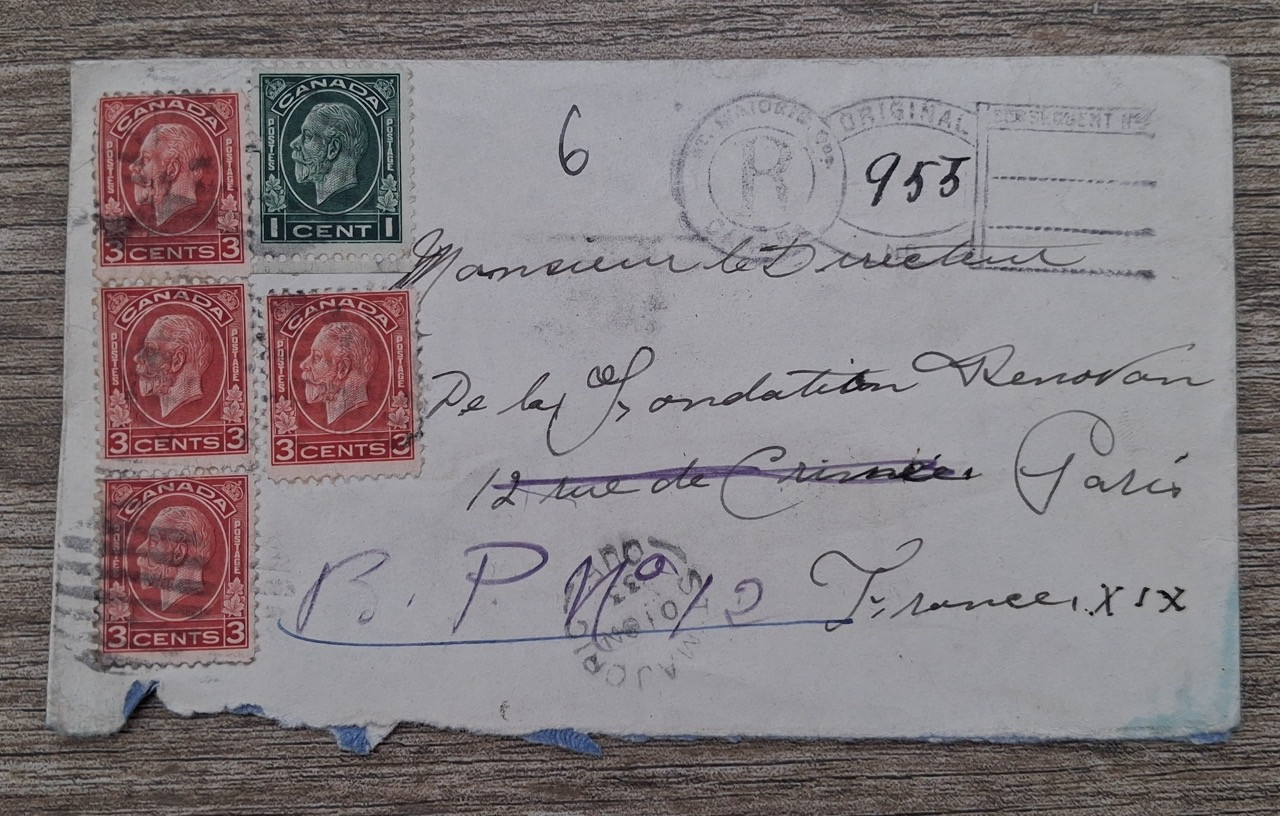 CANADA
POSTES POSTAGE
3 CENTS 3
CANADA
POSTES POSTAGE
1 CENT 1
CANADA
POSTES POSTAGE
3 CENTS 3
CANADA
POSTES POSTAGE
3 CENTS 3
CANADA
POSTES POSTAGE
3 CENTS 3
6
R
ORIGINAL
955
Monsieur le Directeur
De la Fondation Renovan
12 rue de Crimée. Paris
B. P N° 12 France. XIX
ST MAJORIC QUE